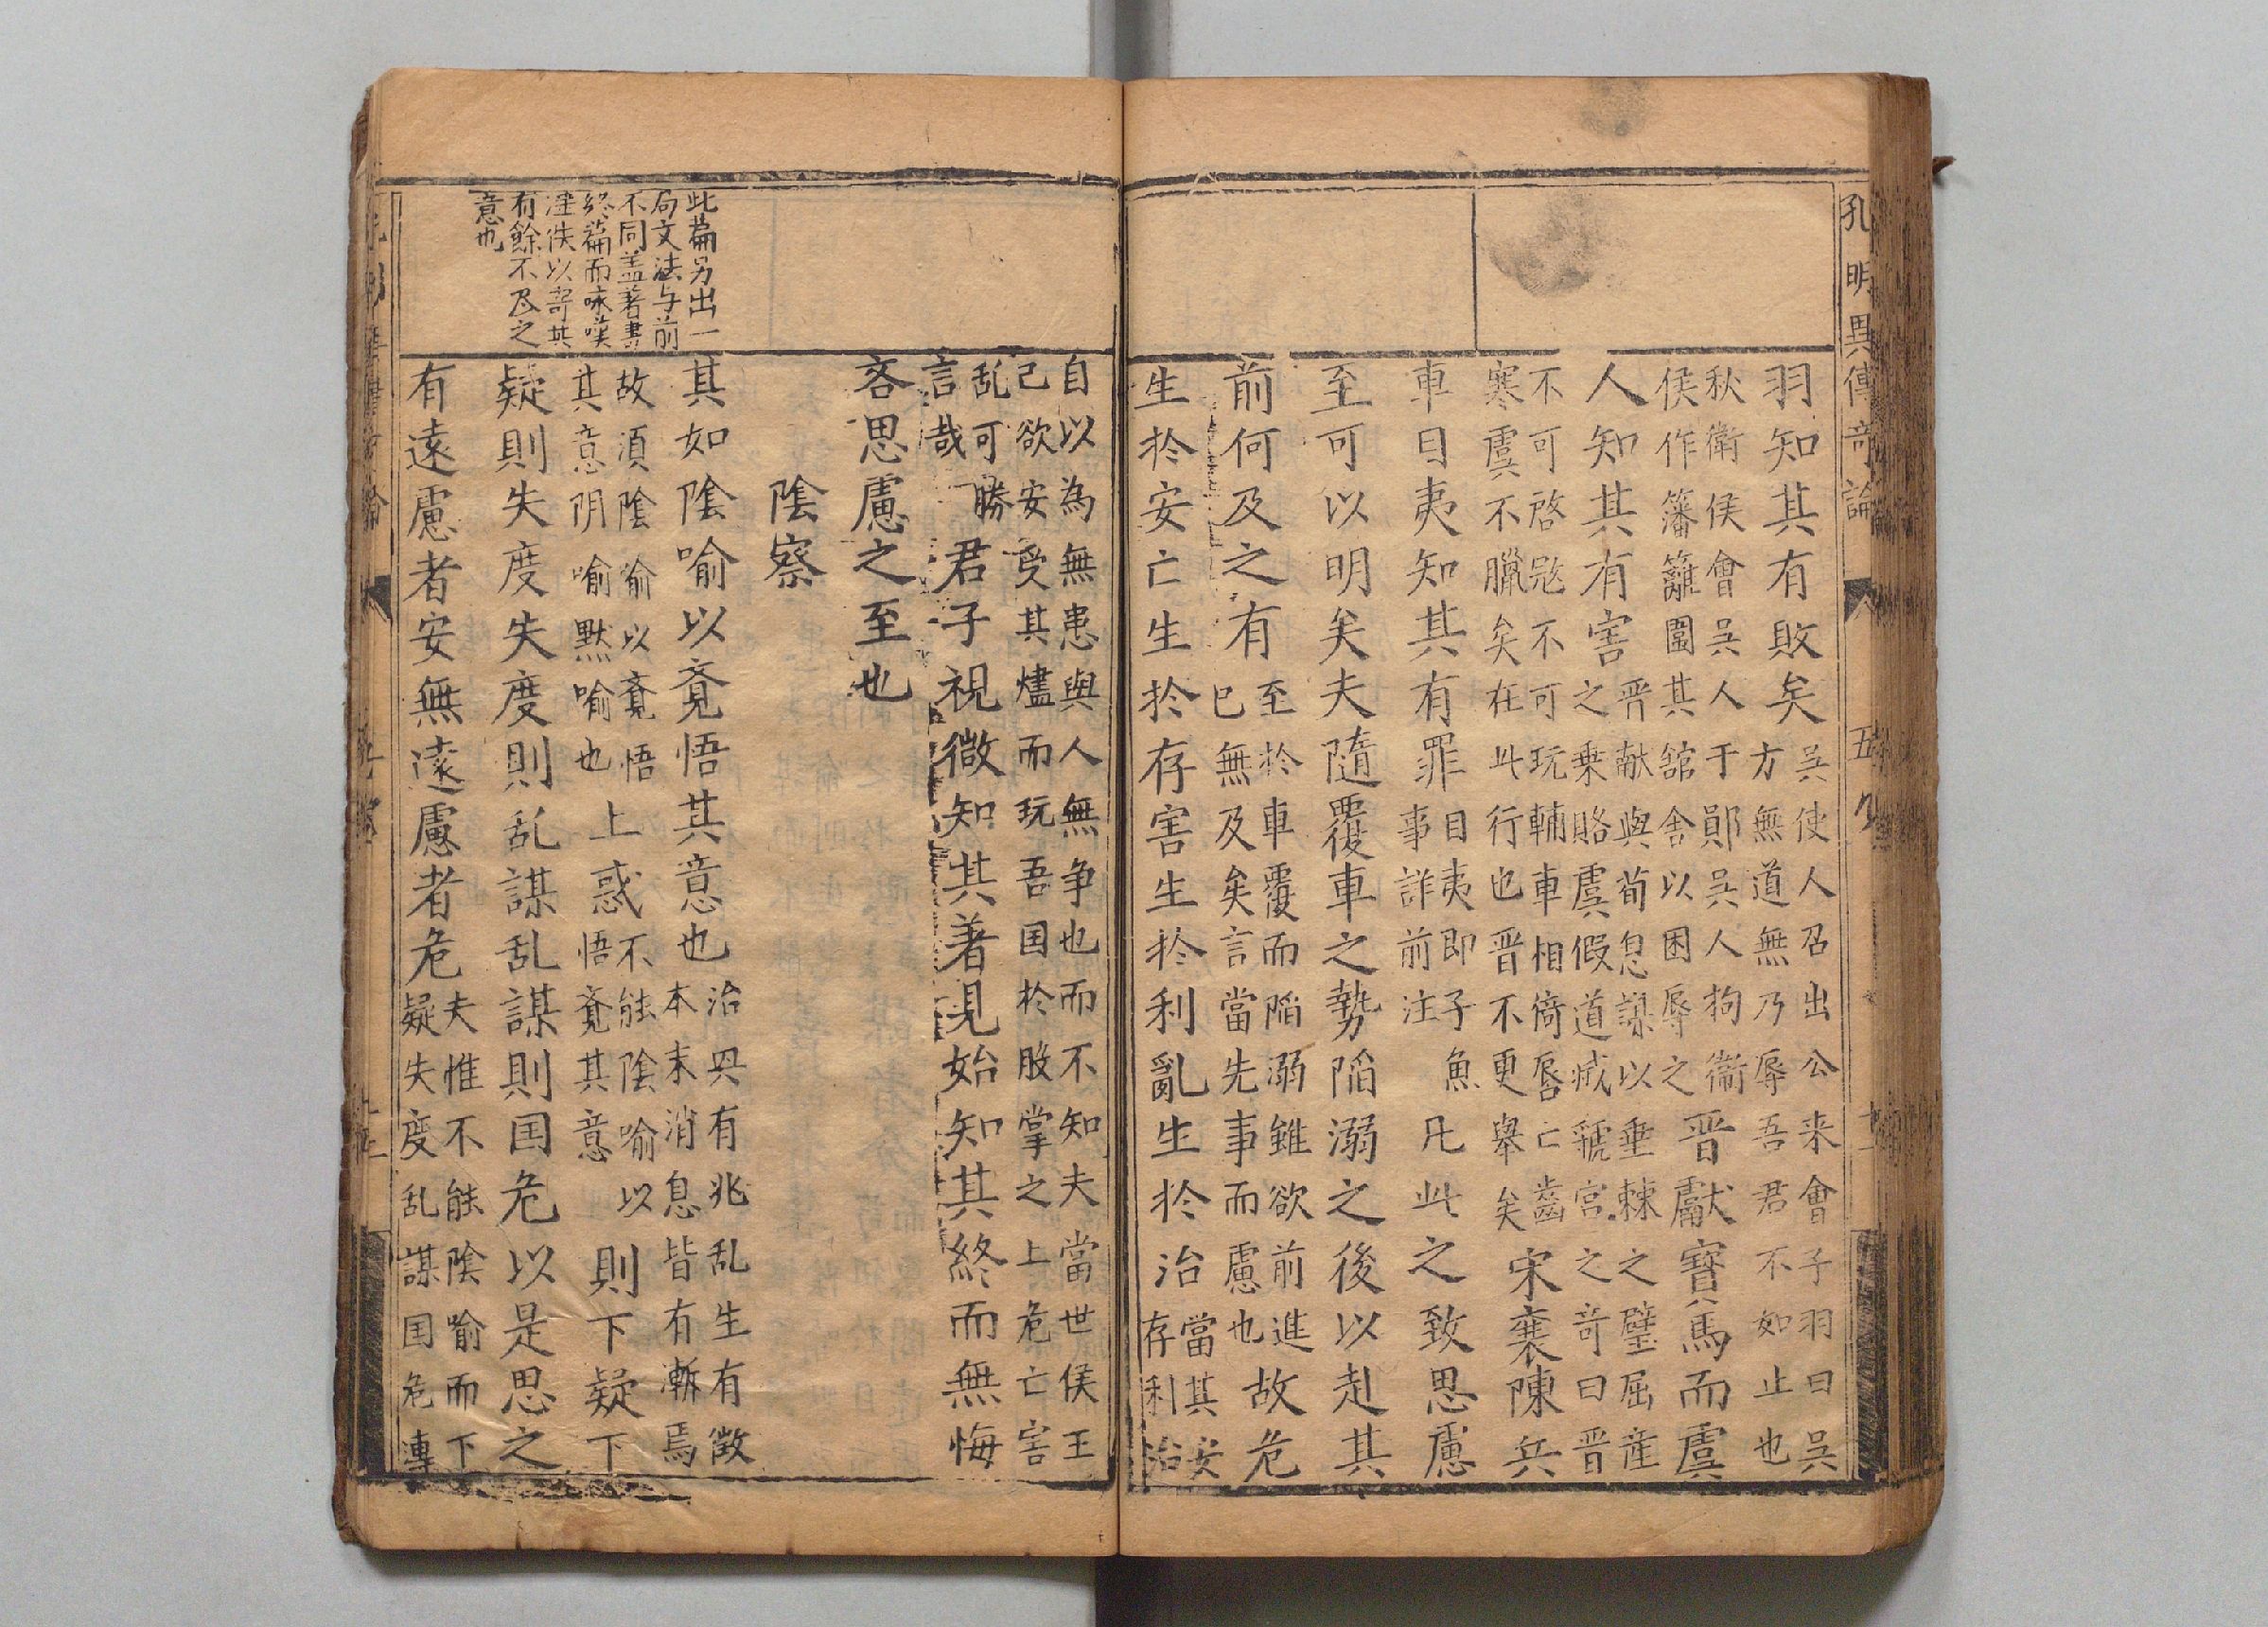 孔明異傳奇論
五
羽知其有敗矣
吳使人召出公来會子羽曰吳
方無道無乃辱吾君不如止也
秋衛侯會吳人于鄖吳人拘衞
侯作籓籬圍其舘舍以困辱之
晋獻寳馬而虞
人知其有害
晋献與荀息謀以垂棘之璧屈産
之乗賂虞假道烕虢宫之竒曰晋
不可啓冦不可玩輔車相倚唇亡齒
寒虞不臘矣在此行也晋不更舉矣
宋襄陳兵
車目夷知其有罪
目夷即子魚
事詳前注
凡此之致思慮
至可以明矣夫隨覆車之勢陷溺之後以赴其
前何及之有
至於車覆而陷溺雖欲前進
已無及矣言當先事而慮也
故危
生於安亡生於存害生於利亂生於治
當其安
存利治
自以為無患與人無争也而不知夫當世侯王
己欲安受其燼而玩吾国於股掌之上危亡害
乱可勝
言哉
君子視微知其著見始知其終而無悔
吝思慮之至也
陰察
此篇另出一
局文法与前
不同盖著書
終篇而咏嘆
滛佚以寄其
有餘不尽之
意也
其如陰喻以斍悟其意也
治具有兆乱生有徴
本末消息皆有漸焉
故須陰喻以斍悟
其意阴喻黙喻也
上惑
不能陰喻以
悟斍其意
則下疑下
疑則失度失度則乱謀乱謀則国危以是思之
有遠慮者安無遠慮者危
夫惟不能陰喻而下
疑失度乱謀国危連